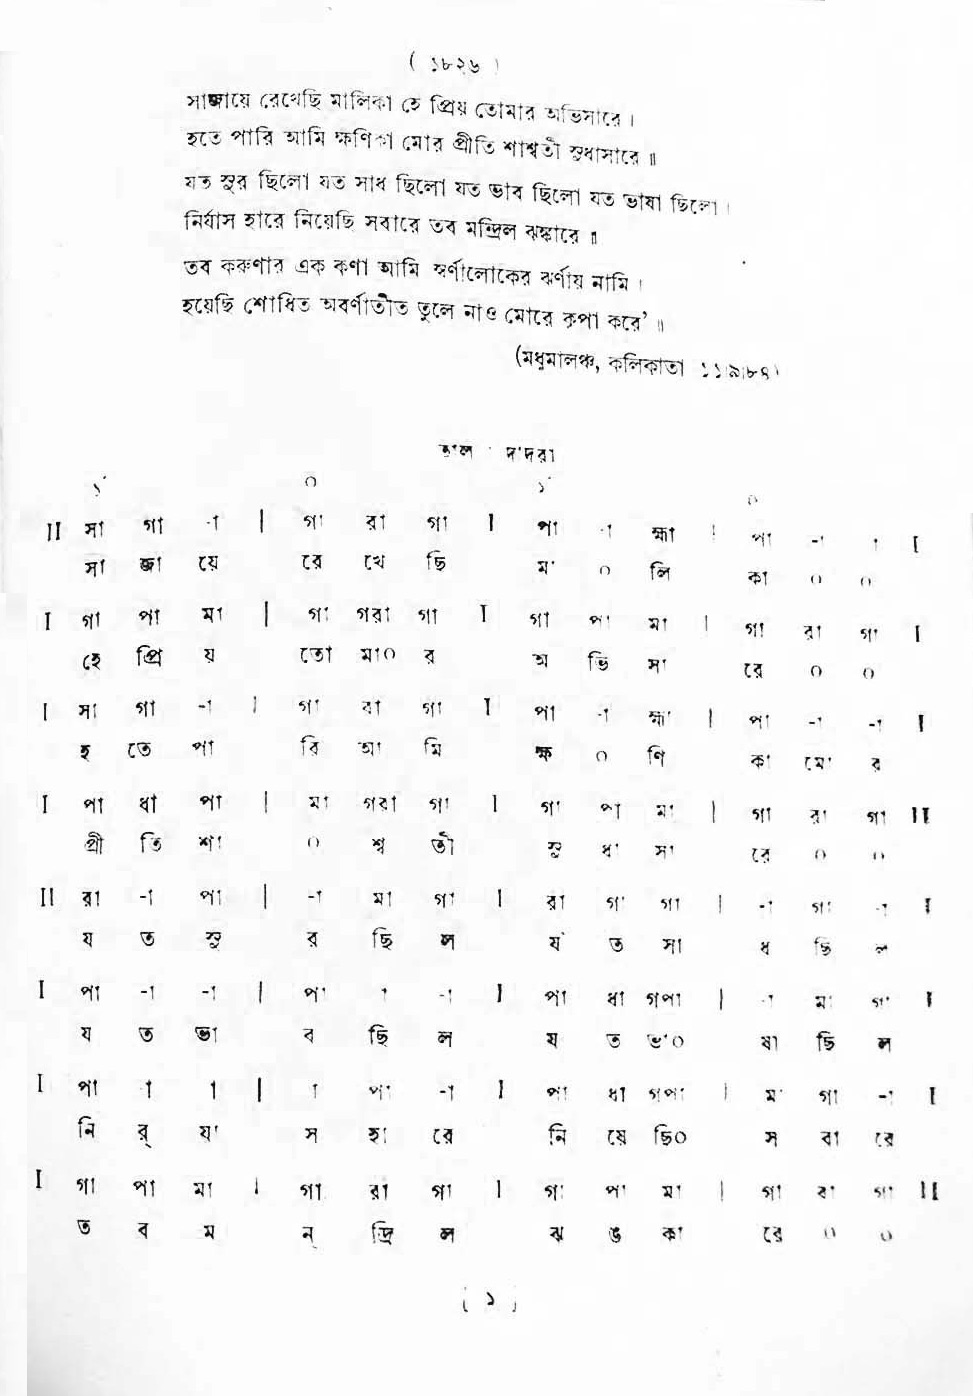 ( ১৮২৬ )
সাজায়ে রেখেছি মালিকা হে প্রিয় তোমার অভিসারে ।
হতে পারি আমি ক্ষণিকা মোর প্রীতি শাশ্বতী সুধাসারে ॥
যত সুর ছিলো যত সাধ ছিলো যত ভাব ছিলো যত ভাষা ছিলো ।
নির্যাস হারে নিয়েছি সবারে তব মন্দ্রিল ঝঙ্কারে ॥
তব করুণার এক কণা আমি স্বর্ণালোকের ঝর্ণায় নামি ।
হয়েছি শোধিত অবর্ণাতীত তুলে নাও মোরে কৃপা করে' ॥
(মধুমালঞ্চ, কলিকাতা ১১।৯।৮৭)
তাল : দাদরা
১´ ০ ১´ ০
II সা গা -া | গা রা গা I পা -া হ্মা | পা -া া I
সা জা য়ে রে খে ছি মা ০ লি কা ০ ০
I গা পা মা | গা গরা গা I গা পা মা | গা রা গা I
হে প্রি য় তো মা০ র অ ভি সা রে ০ ০
I সা গা -া | গা রা গা I পা -া হ্মা | পা -া -া I
হ তে পা রি আ মি ক্ষ ০ ণি কা মো র
I পা ধা পা | মা গরা গা I গা পা মা | গা রা গা II
প্রী তি শা ০ শ্ব তী সু ধা সা রে ০ ০
II রা -া পা | -া মা গা I রা গা গা | -া গা -া I
য ত সু র ছি ল য ত সা ধ ছি ল
I পা -া -া | পা া -া I পা ধা গপা | -া মা গা I
য ত ভা ব ছি ল য ত ভা০ ষা ছি ল
I পা া া | া পা -া I পা ধা গপা | মা গা -া I
নি র্ যা স হা রে নি য়ে ছি০ স বা রে
I গা পা মা | গা রা গা I গা পা মা | গা রা গা II
ত ব ম ন্ দ্রি ল ঝ ঙ কা রে ০ ০
( ১ )